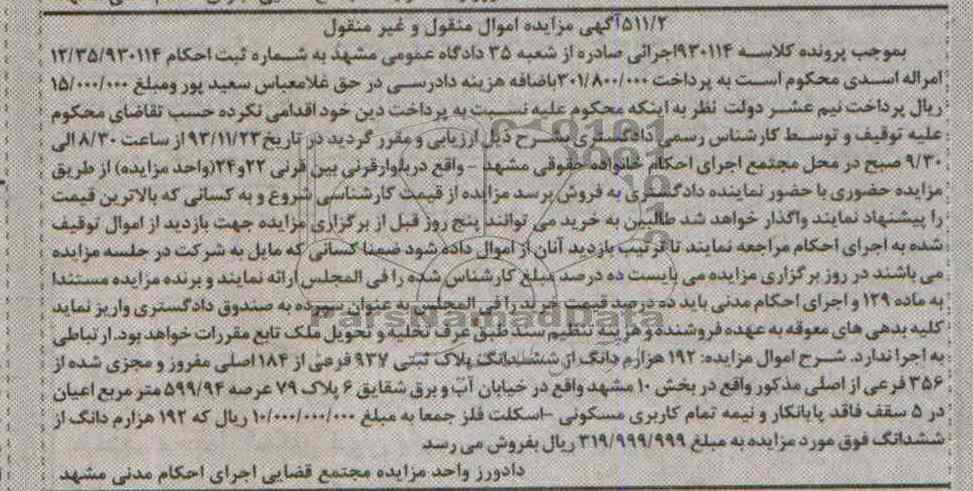 ۵۱۱/۲آگهی مزایده اموال منقول و غیر منقول
بموجب پرونده کلاسه ۹۳۰۱۱۴اجرائی صادره از شعبه ۳۵ دادگاه عمومی مشهد به شماره ثبت احکام ۱۲/۳۵/۹۳۰۱۱۴
امراله اسدی محکوم است به پرداخت ۳۰۱/۸۰۰/۰۰۰باضافه هزینه دادرسی در حق غلامعباس سعید پور ومبلغ ۱۵/۰۰۰/۰۰۰
ریال پرداخت نیم عشر دولت نظر به اینکه محکوم علیه نسبت به پرداخت دین خود اقدامی نکرده حسب تقاضای محکوم
علیه توقیف و توسط کارشناس رسمی دادگستری بشرح ذیل ارزیابی و مقرر گردید در تاریخ ۹۳/۱۱/۲۳ از ساعت ۸/۳۰ الی
۹/۳۰ صبح در محل مجتمع اجرای احکام خانواده حقوقی مشهد - واقع دربلوارقرنی بین قرنی ۲۲و۲۴(واحد مزایده) از طریق
مزایده حضوری با حضور نماینده دادگستری به فروش برسد مزایده از قیمت کارشناسی شروع و به کسانی که بالاترین قیمت
را پیشنهاد نمایند واگذار خواهد شد طالبین به خرید می توانند پنج روز قبل از برگزاری مزایده جهت بازدید از اموال توقیف
شده به اجرای احکام مراجعه نمایند تا ترتیب بازدید آنان از اموال داده شود ضمنا کسانی که مایل به شرکت در جلسه مزایده
می باشند در روز برگزاری مزایده می بایست ده درصد مبلغ کارشناس شده را فی المجلس ارائه نمایند و برنده مزایده مستندا
به ماده ۱۲۹ و اجرای احکام مدنی باید ده درصد قیمت خرید را فی المجلس به عنوان سپرده به صندوق دادگستری واریز نماید
کلیه بدهی های معوقه به عهده فروشنده و هزینه تنظیم سند طبق عرف تخلیه و تحویل ملک تابع مقررات خواهد بود. ارتباطی
به اجرا ندارد. شرح اموال مزایده: ۱۹۲ هزارم دانگ از ششدانگ پلاک ثبتی ۹۳۷ فرعی از ۱۸۴ اصلی مفروز و مجزی شده از
۳۵۶ فرعی از اصلی مذکور واقع در بخش ۱۰ مشهد واقع در خیابان آب و برق شقایق ۶ پلاک ۷۹ عرصه ۵۹۹/۹۴ متر مربع اعیان
در ۵ سقف فاقد پایانکار و نیمه تمام کاربری مسکونی -اسکلت فلز جمعا به مبلغ ۱۰/۰۰۰/۰۰۰/۰۰۰ ریال که ۱۹۲ هزارم دانگ از
ششدانگ فوق مورد مزایده به مبلغ ۳۱۹/۹۹۹/۹۹۹ ریال بفروش می رسد
دادورز واحد مزایده مجتمع قضایی اجرای احکام مدنی مشهد
ParsNamadData